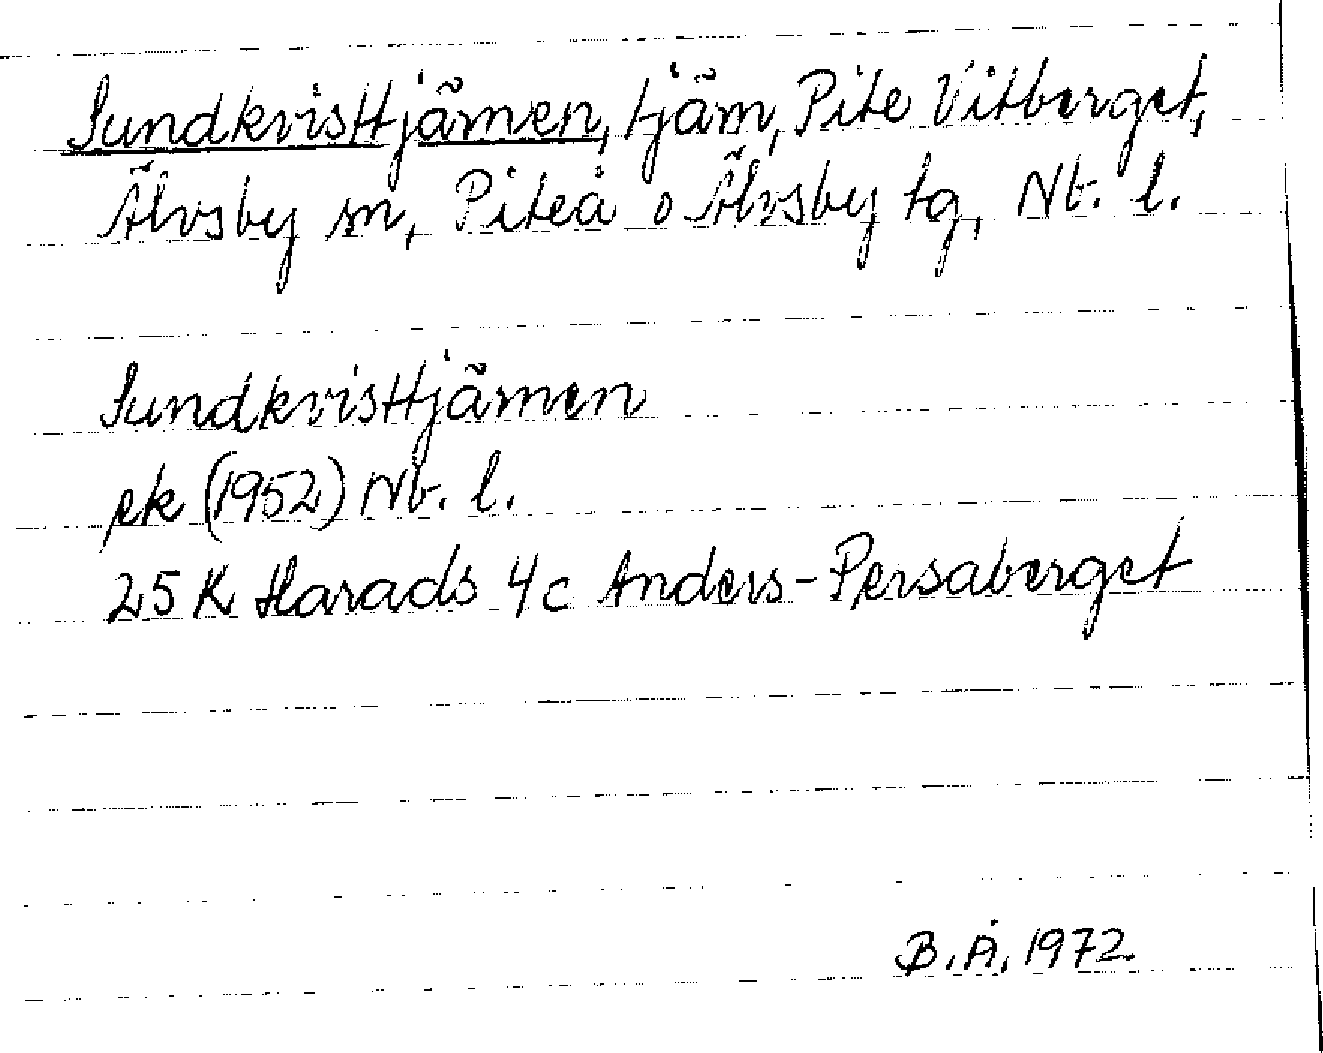 Sundkvisttjärnen, tjärn, Pite Vitberget,
Älvsby sn, Piteå o Älvsby tg, Nb. l.
Sundkvisttjärnen
ek (1952) Nb. l.
25 K Harads 4c Anders-Persaberget
B.Å. 1972.